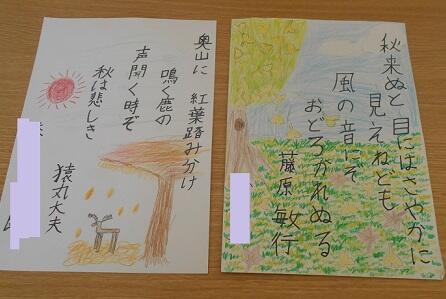 奥山に 紅葉踏み分け
鳴く鹿の
声聞く時ぞ
秋は悲しき
猿丸大夫
秋来ぬと 目にはさやかに
見えねども
風の音にぞ
おどろかれぬる
藤原敏行